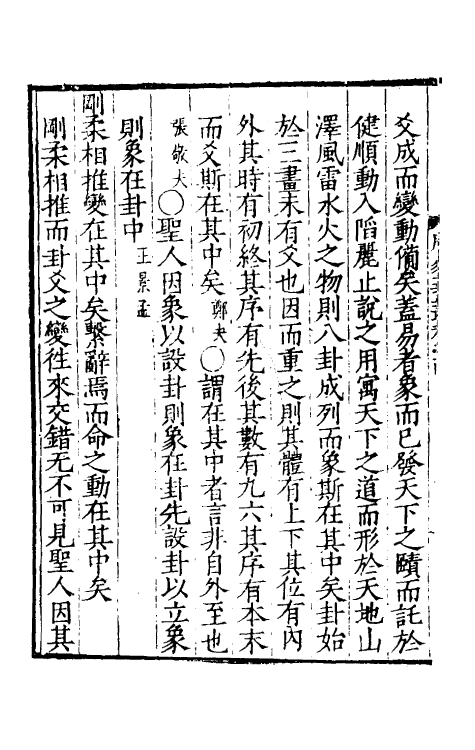 爻成而變動備矣蓋易者象而已發天下之賾而託於
健順動入陷麗止說之用寓天下之道而形於天地山
澤風雷水火之物則八卦成列而象斯在其中矣卦始
於三畫未有爻也因而重之則其體有上下其位有內
外其時有初終其序有先後其數有九六其序有本末
而爻斯在其中矣鄭夬○謂在其中者言非自外至也
張敬夫○聖人因象以設卦則象在卦先設卦以立象
則象在卦中王景孟
剛柔相推變在其中矣繫辭焉而命之動在其中矣
剛柔相推而卦爻之變徃來交錯无不可見聖人因其